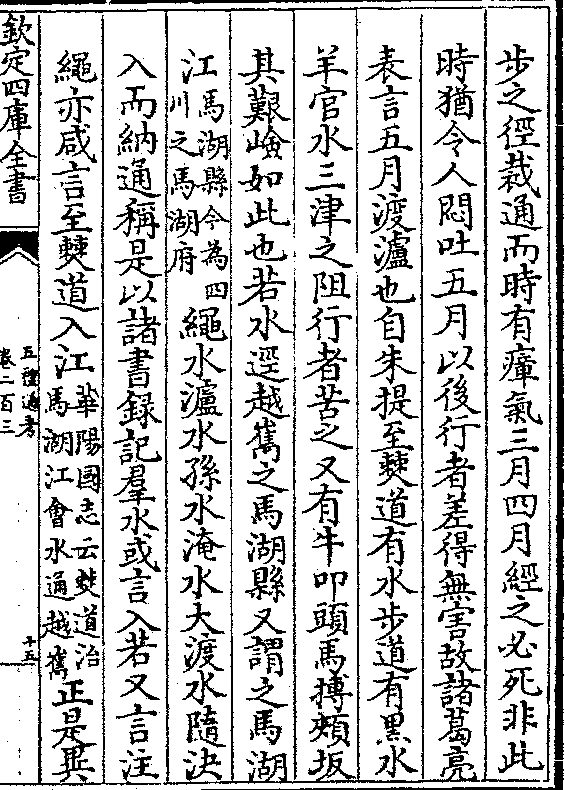 步之徑裁通而時有瘴氣三月四月經之必死非此
時猶令人悶吐五月以後行者差得無害故諸葛亮
表言五月渡瀘也自朱提至僰道有水步道有黑水
羊官水三津之阻行者苦之又有牛叩頭馬搏頰坂
其艱嶮如此也若水逕越嶲之馬湖縣又謂之馬湖
江馬湖縣今為四川之馬湖府繩水瀘水孫水淹水大渡水隨決
入而納通稱是以諸書錄記羣水或言入若又言注
繩亦咸言至僰道入江華陽國志云僰道治馬湖江會水通越嶲正是異
欽定四庫全書
五禮通考
卷二百三
十五